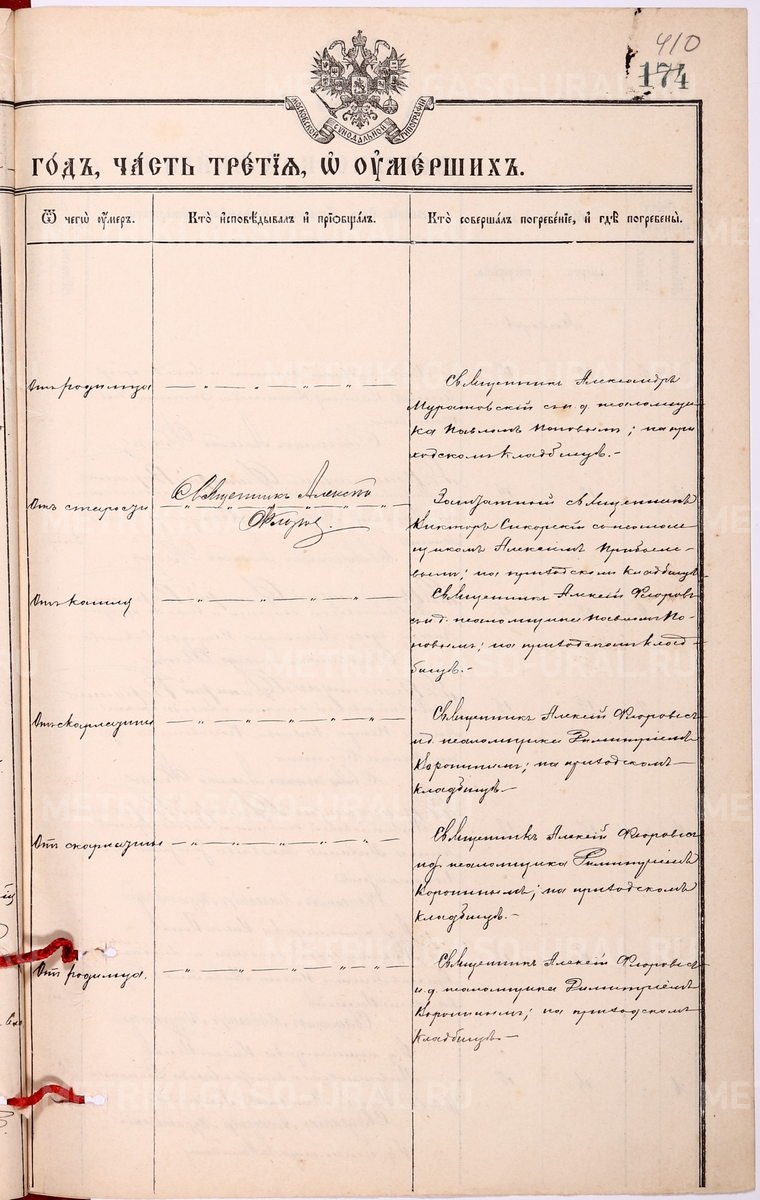 410
174
МОСКОВСКОЙ СѴНОДАЛЬНОЙ ТИПОГРАФІИ
го́дъ, ча́сть тре́тїѧ, ѡ҆ ᲂу҆ме́ршихъ.
Ѿ чегѡ̀ ᲂу҆́меръ.
Кто̀ и҆сповѣ́дывалъ и҆ прїѻбща́лъ.
Кто̀ соверша́лъ погребе́нїе, и҆ гдѣ̀ погребены̀.
Отъ родимца
— „ — „ — „ — „ —
Священникъ Александръ
Муратовскій съ и. д. псаломщи
ка Павломъ Поповымъ; на при
ходскомъ кладбищѣ.-
Отъ старости
Священникъ Алексѣй
Флоровъ.
Заштатный священникъ
Викторъ Сикорскій съ псалом
щикомъ Алексѣемъ
; на приходскомъ кладбищѣ
Отъ кашля
— „ — „ — „ — „ —
Священникъ Алексѣй Флоровъ
съ и.д. псаломщика Павломъ По
повымъ; на приходскомъ клад-
бищѣ.-
Отъ скарлатины
— „ — „ — „ — „ — „ —
Священникъ Алексѣй Флоровъ съ
и.д. псаломщика Димитріемъ
Коронинымъ; на приходскомъ
кладбищѣ.-
Отъ скарлатины
— „ — „ — „ — „ — „ —
Священникъ Алексѣй Флоровъ съ
и.д. псаломщика Димитріемъ
Коронинымъ; на приходскомъ
кладбищѣ.-
Отъ родимца.
— „ — „ — „ — „ — „ —
Священникъ Алексѣй Флоровъ съ
и.д. псаломщика Димитріемъ
Коронинымъ; на приходскомъ
кладбищѣ.-
METRIKI.GASO-URAL.RU